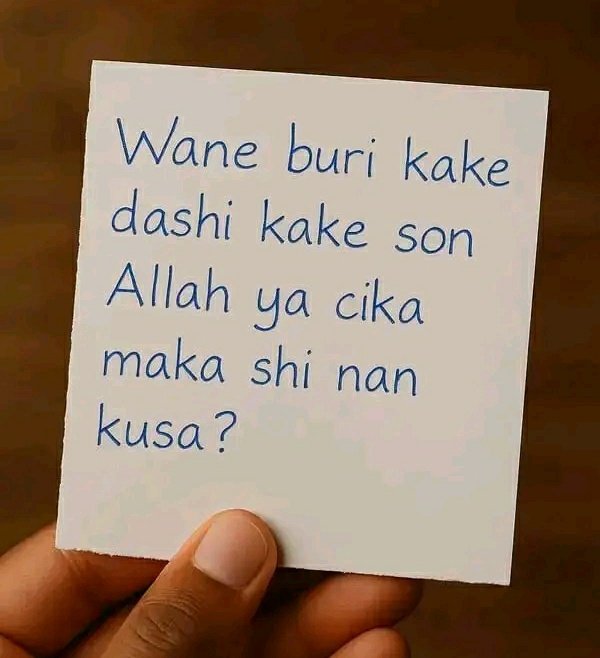 Wane buri kake
dashi kake son
Allah ya cika
maka shi nan
kusa?